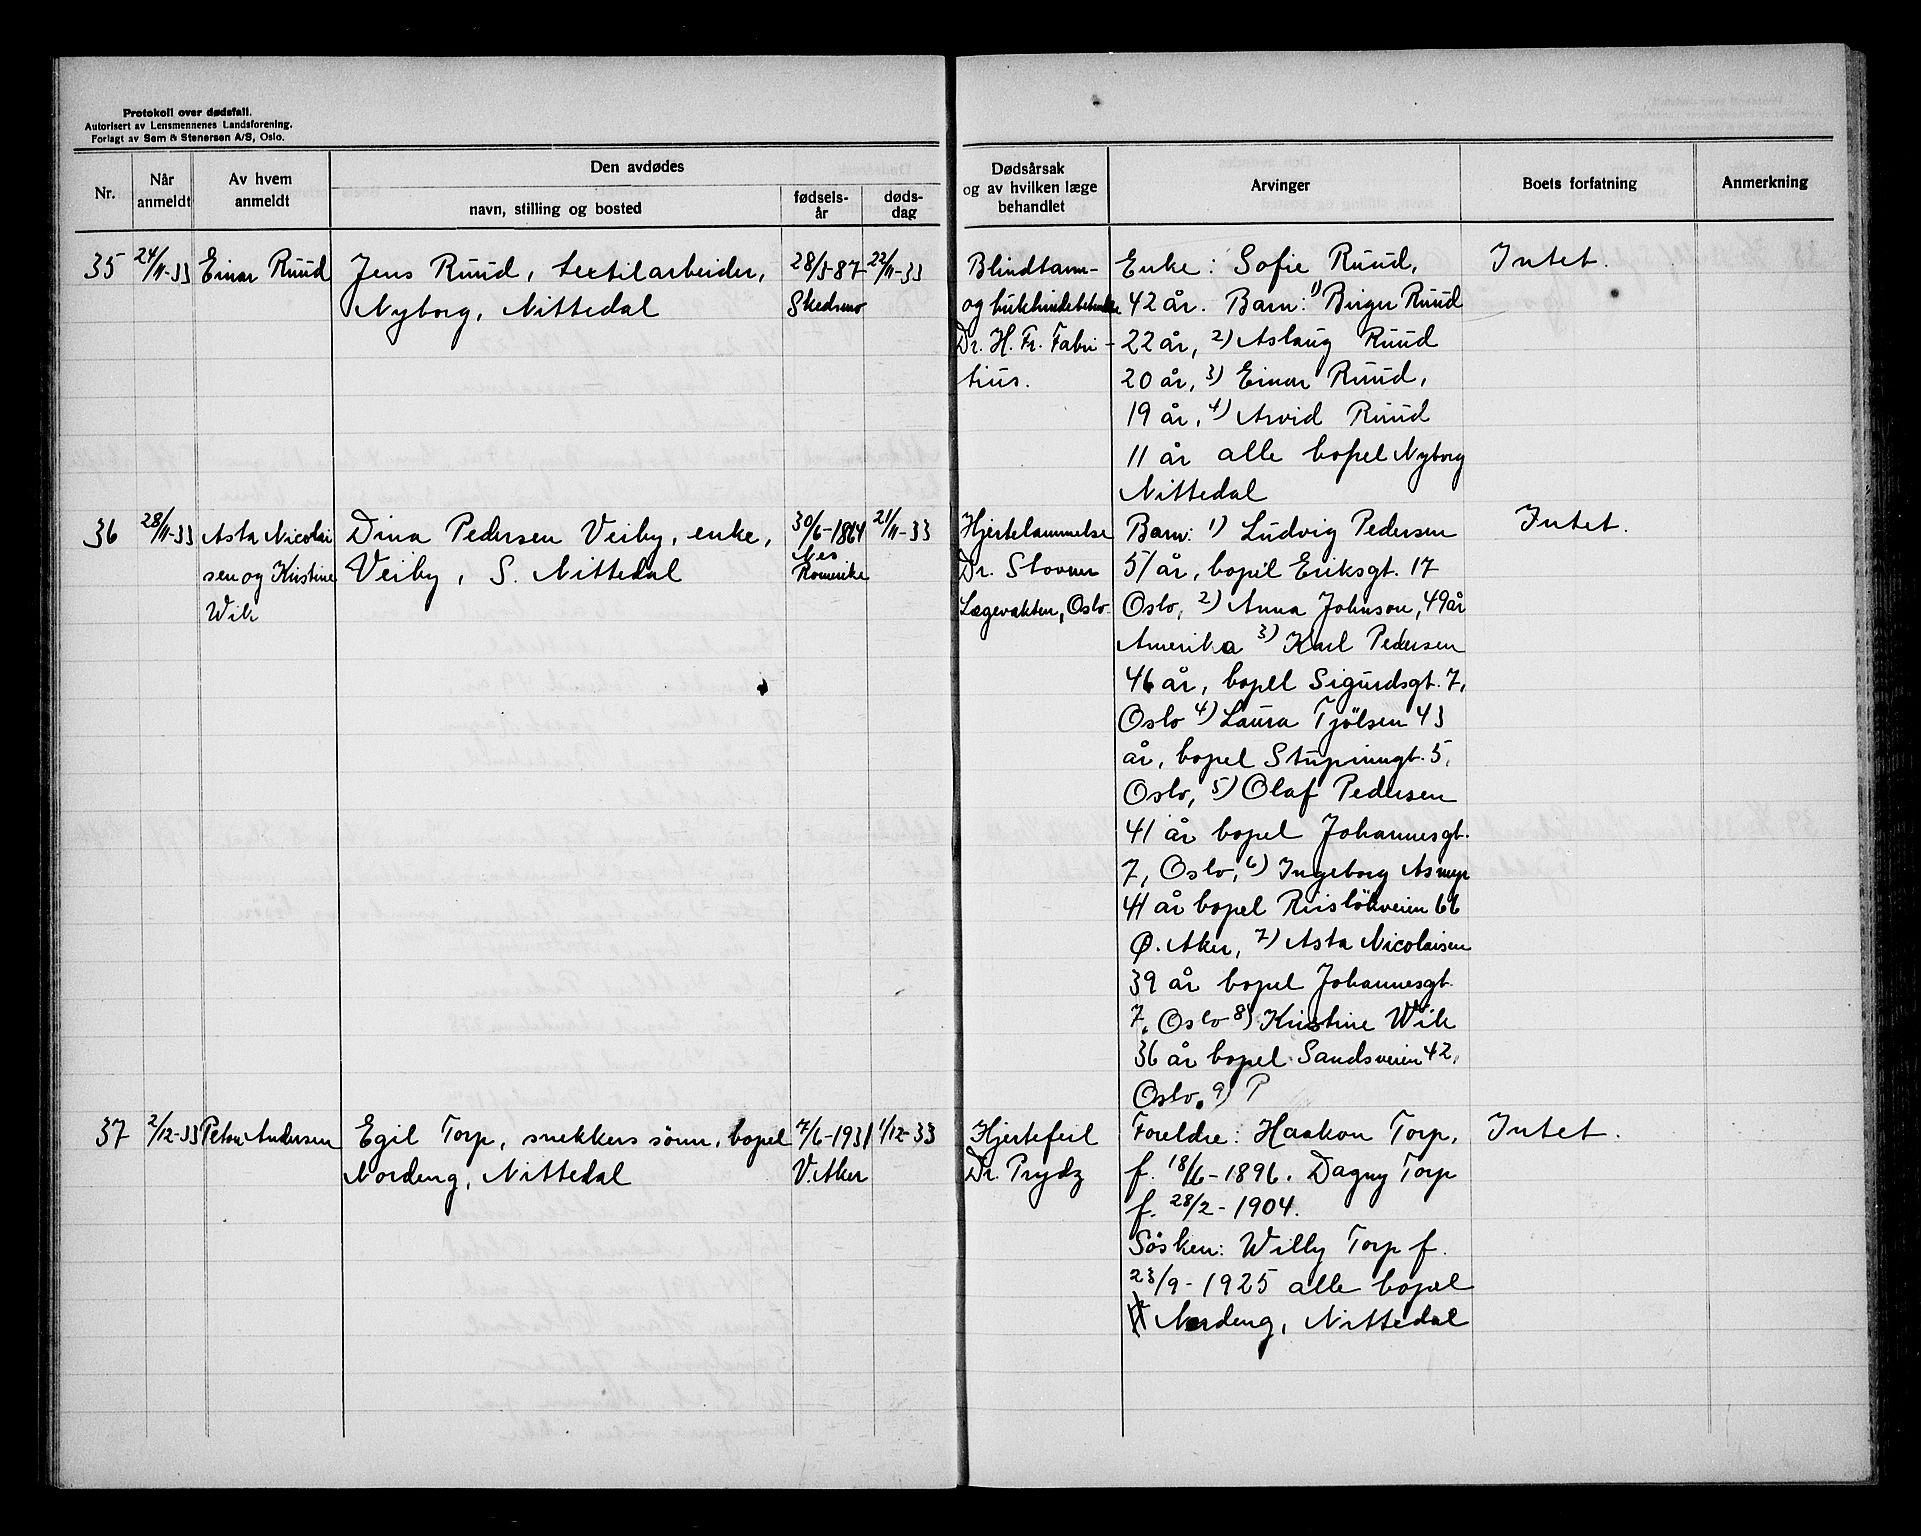 Protokoll over dødsfall.
Autorisert av Lensmennenes Landsforening.
Forlagt av Sem & Stenersen A/S, Oslo.
Nr.
Når anmeldt
Av hvem anmeldt
Den avdødes
navn, stilling og bosted
fødsels-år
døds-dag
Dødsårsak og av hvilken læge behandlet
Arvinger
Boets forfatning
Anmerkning
35 24/11-33 Einar Ruud
Jens Ruud, textilarbeider,
Nyborg, Nittedal
28/5-87
Skedsmo
22/11-33
Blindtarm-
og
Dr. H. Fr. Fabri-
tius.
Enke: Sofie Ruud,
42 år. Barn: 1) Birger Ruud
22 år, 2) Aslaug Ruud
20 år, 3) Einar Ruud,
19 år, 4) Arvid Ruud
11 år alle bopel Nyborg
Nittedal
Intet.
36 28/11-33 Asta Nicolai
sen og Kristine
Wik
Dina Pedersen Veiby, enke,
Veiby, S. Nittedal
30/6-1864
Nes
Romerike
21/11-33
Hjertelammelse
Dr. Stovner
Lægevakten, Oslo.
Barn: 1) Ludvig Pedersen
51 år, bopel Eriksgt. 17
Oslo, 2) Anna Johnson, 49 år
Amerika 3) Karl Pedersen
46 år, bopel Sigurdsgt. 7,
Oslo 4) Laura Tjölsen 43
år, bopel Stupinngt. 5,
Oslo, 5) Olaf Pedersen
41 år bopel Johannesgt.
7, Oslo, 6) Ingeborg Asmyr
41 år bopel Riislökveien 66
Ø. Aker, 7) Asta Nicolaisen
39 år bopel Johannesgt.
7, Oslo 8) Kristine Wik
36 år bopel Sandsveien 42,
Oslo. 9) P
Intet.
37 2/12-33 Petra Andersen
Egil Torp, snekkers sönn, bopel
Nordeng, Nittedal
7/6-1931
V. Aker
1/12-33
Hjertefeil
Dr. Prydz
Foreldre: Haakon Torp,
f. 18/6-1896. Dagny Torp
f. 28/2-1904.
Søsken: Willy Torp f.
23/9-1925 alle bopel
Nordeng, Nittedal
Intet.